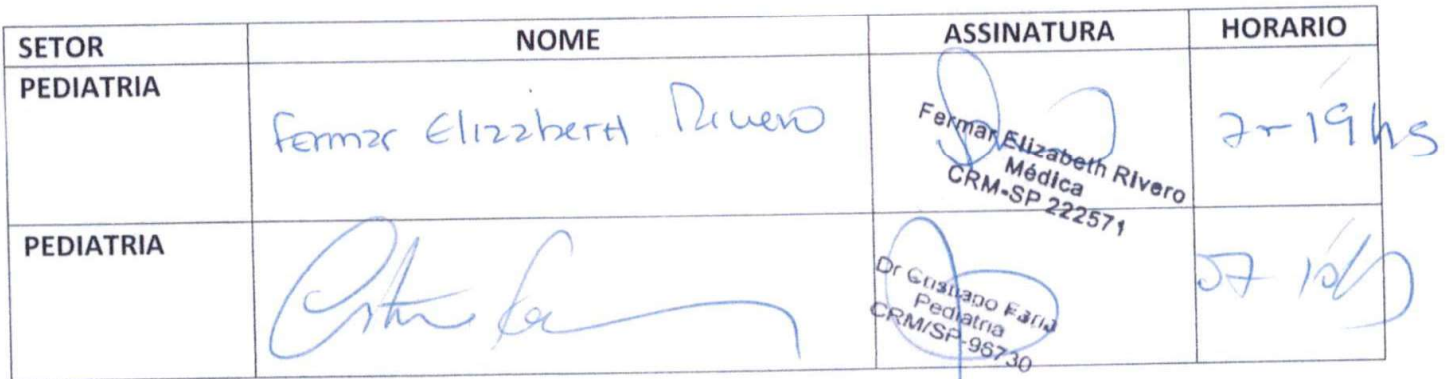 SETOR NOME ASSINATURA HORARIO
PEDIATRIA
Fermar Elizabeth Rivero
7-19hs
Fermar Elizabeth Rivero
Médica
CRM-SP 222571
PEDIATRIA
07
Dr Cristiano Faria
Pediatria
CRM/SP-96730